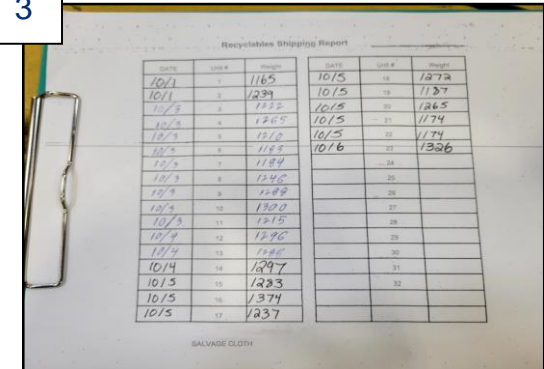 3
Recyclables Shipping Report
DATE Unit # Weight
10/1 1 1165
10/1 2 1239
10/3 3 1222
10/3 4 1265
10/3 5 1210
10/3 6 1193
10/3 7 1184
10/3 8 1246
10/3 9
10/3 10 1300
10/3 11 1215
10/4 12 1296
10/4 13
10/4 14 1297
10/5 15 1283
10/5 16 1374
10/5 17 1237
DATE Unit # Weight
10/5 18 1272
10/5 19 1187
10/5 20 1265
10/5 21 1174
10/5 22 1174
10/6 23 1326
24
25
26
27
28
29
30
31
32
SALVAGE CLOTH